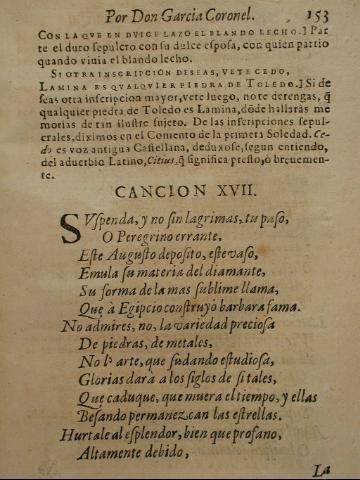 Por Don Garcia Coronel. 153
CON LA QVE EN DVLCE LAZO EL BLANDO LECHO.] Par
te el duro sepulcro con su dulce esposa, con quien partio
quando viuia el blando lecho.
SI OTRA INSCRIPCION DESEAS, VETE CEDO,
LAMINA ES QVALQVIER PIEDRA DE TOLEDO.] Si de
seas otra inscripcion mayor, vete luego, no te detengas, q̃
qualquier piedra de Toledo es Lamina, dõde hallarás me
morias de tan ilustre sujeto. De las inscripciones sepul-
crales, diximos en el Comento de la primera Soledad. Ce-
do es voz antigua Castellana, deduxose, segun entiendo,
del aduerbio Latino, Citius, q̃ significa presto, ò breuemen-
te.
CANCION XVII.
SVspenda, y no sin lagrimas, tu paso,
O Peregrino errante,
Este Augusto deposito, este vaso,
Emula su materia del diamante,
Su forma de la mas sublime llama,
Que à Egipcio construyò barbara fama.
No admires, no, la variedad preciosa
De piedras, de metales,
No la arte, que sudando estudiosa,
Glorias dará a los siglos de si tales,
Que caduque, que muera el tiempo, y ellas
Besando permanezcan las estrellas.
Hurtale al esplendor, bien que profano,
Altamente debido,
La